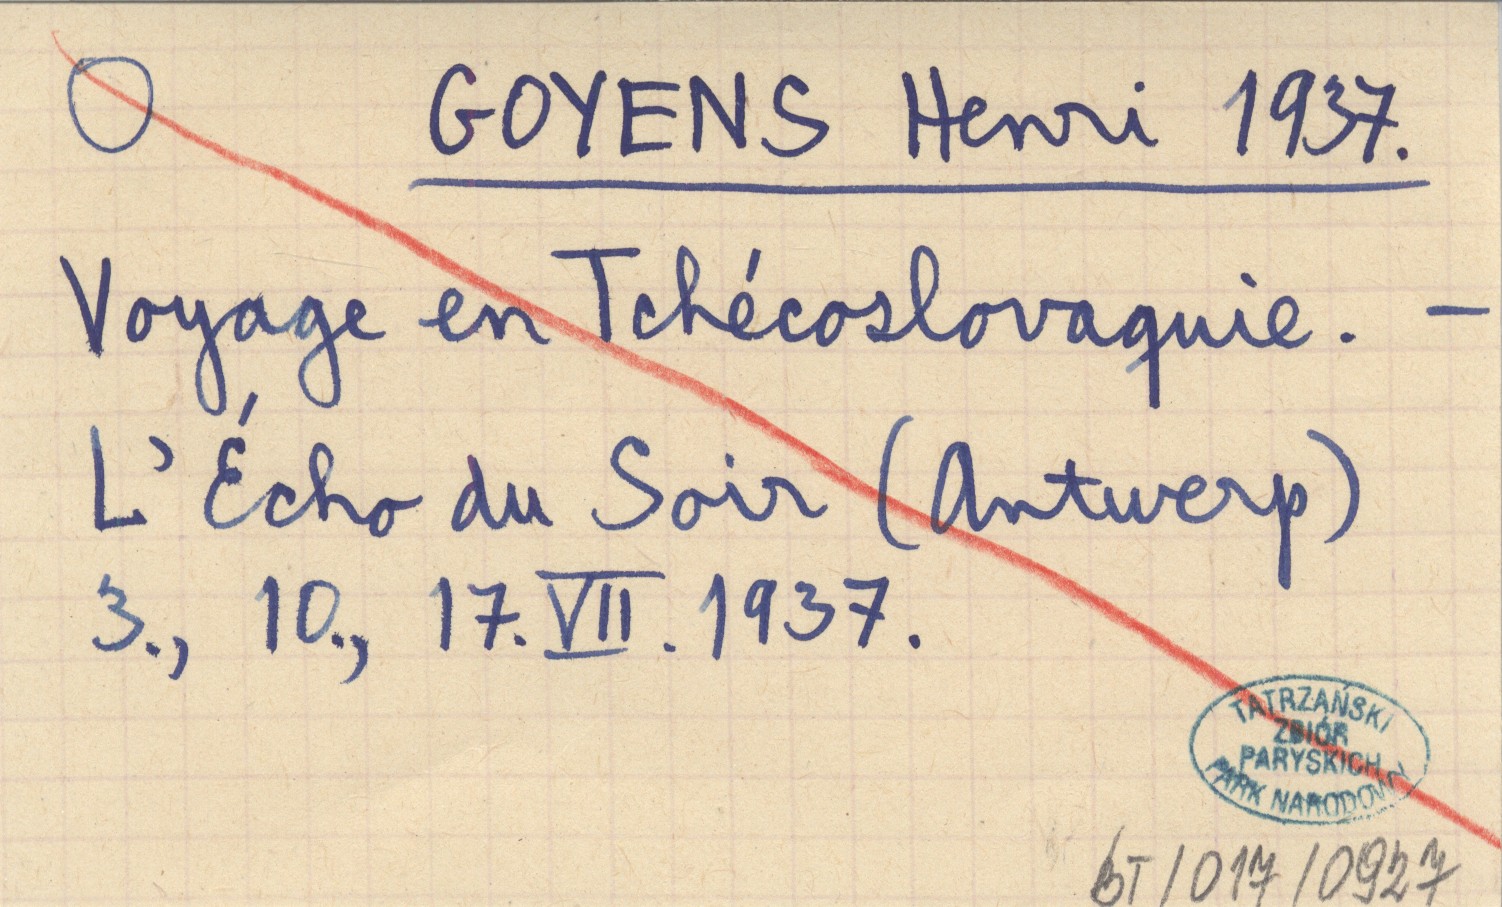 GOYENS Henri 1937.
Voyage en Tchécoslovaquie. —
L'Écho du Soir (Antwerp)
3., 10., 17. VII. 1937.
TATRZAŃSKI
ZBIÓR
PARYSKICH
PARK NARODOWY
BT/017/0927